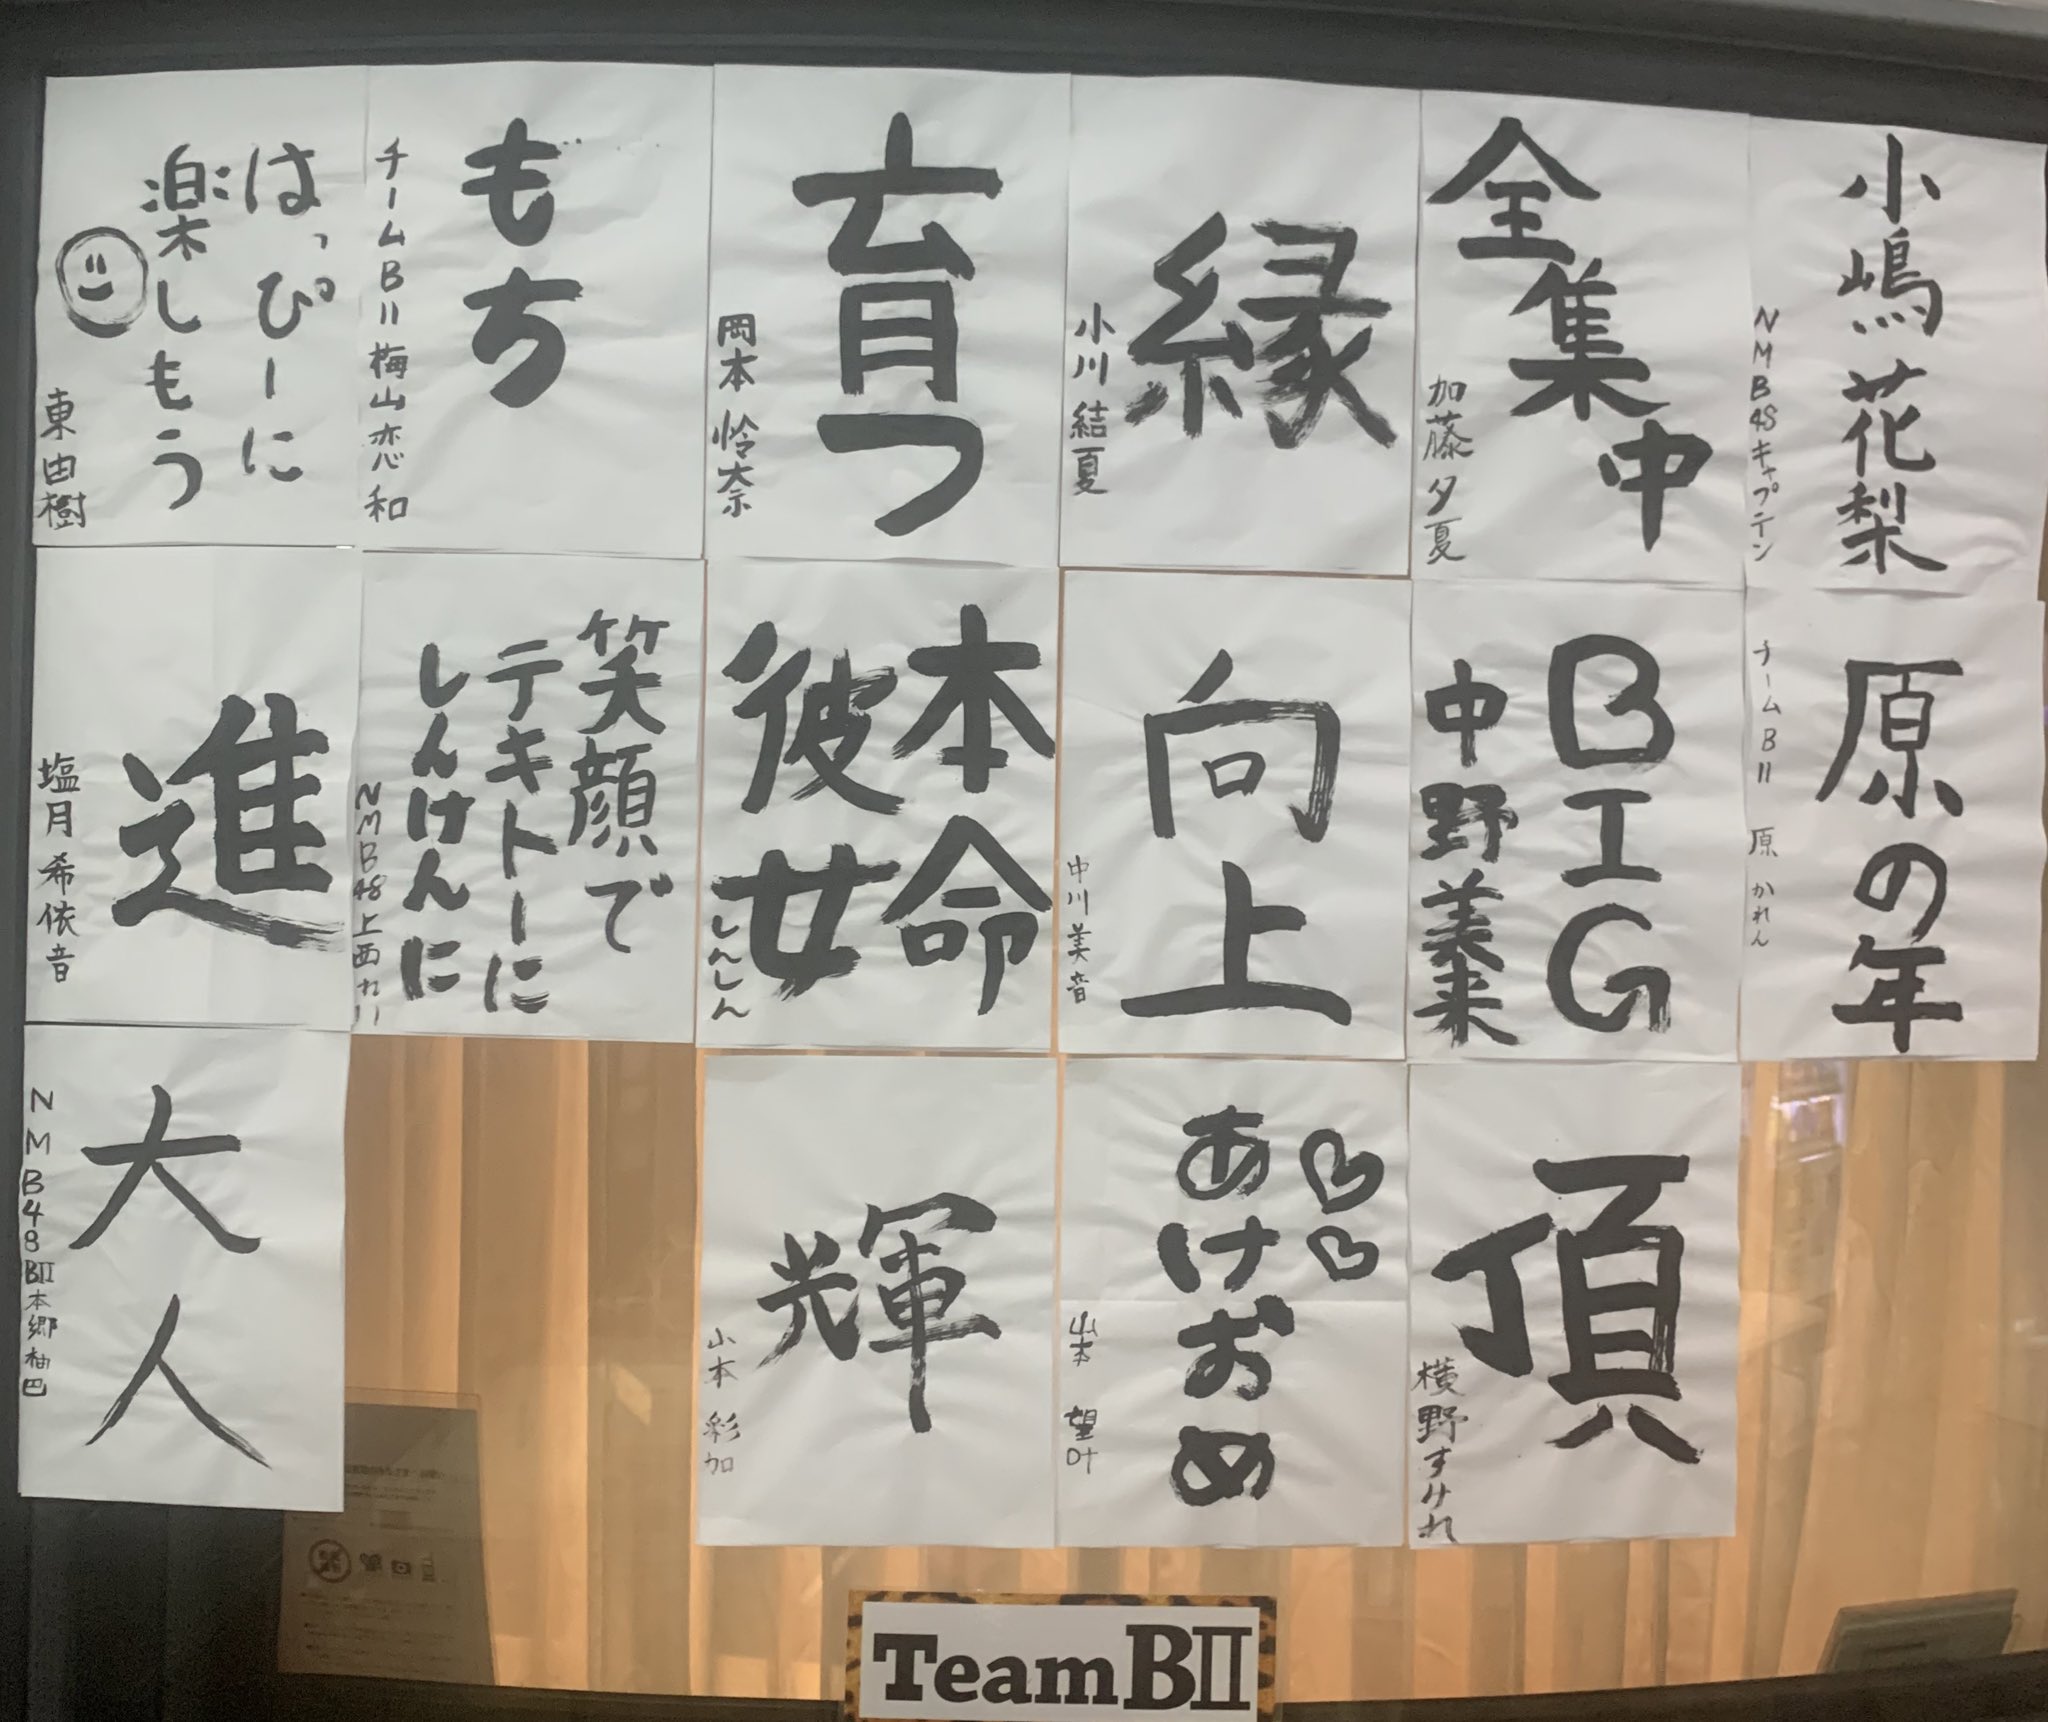 はっぴーに
楽しもう
東由樹
もち
チームBII 梅山恋和
育つ
岡本怜奈
縁
小川結夏
全集中
加藤夕夏
小嶋花梨
NMB48キャプテン
進
塩月希依音
笑顔で
テキトーに
しんけんに
NMB48上西れい
本命
彼女
しんしん
向上
中川美音
BIG
中野美来
原の年
チームBII 原かれん
大人
NMB48BII本郷柚巴
輝
山本彩加
あけおめ
山本望叶
頂
横野すみれ
TeamBII